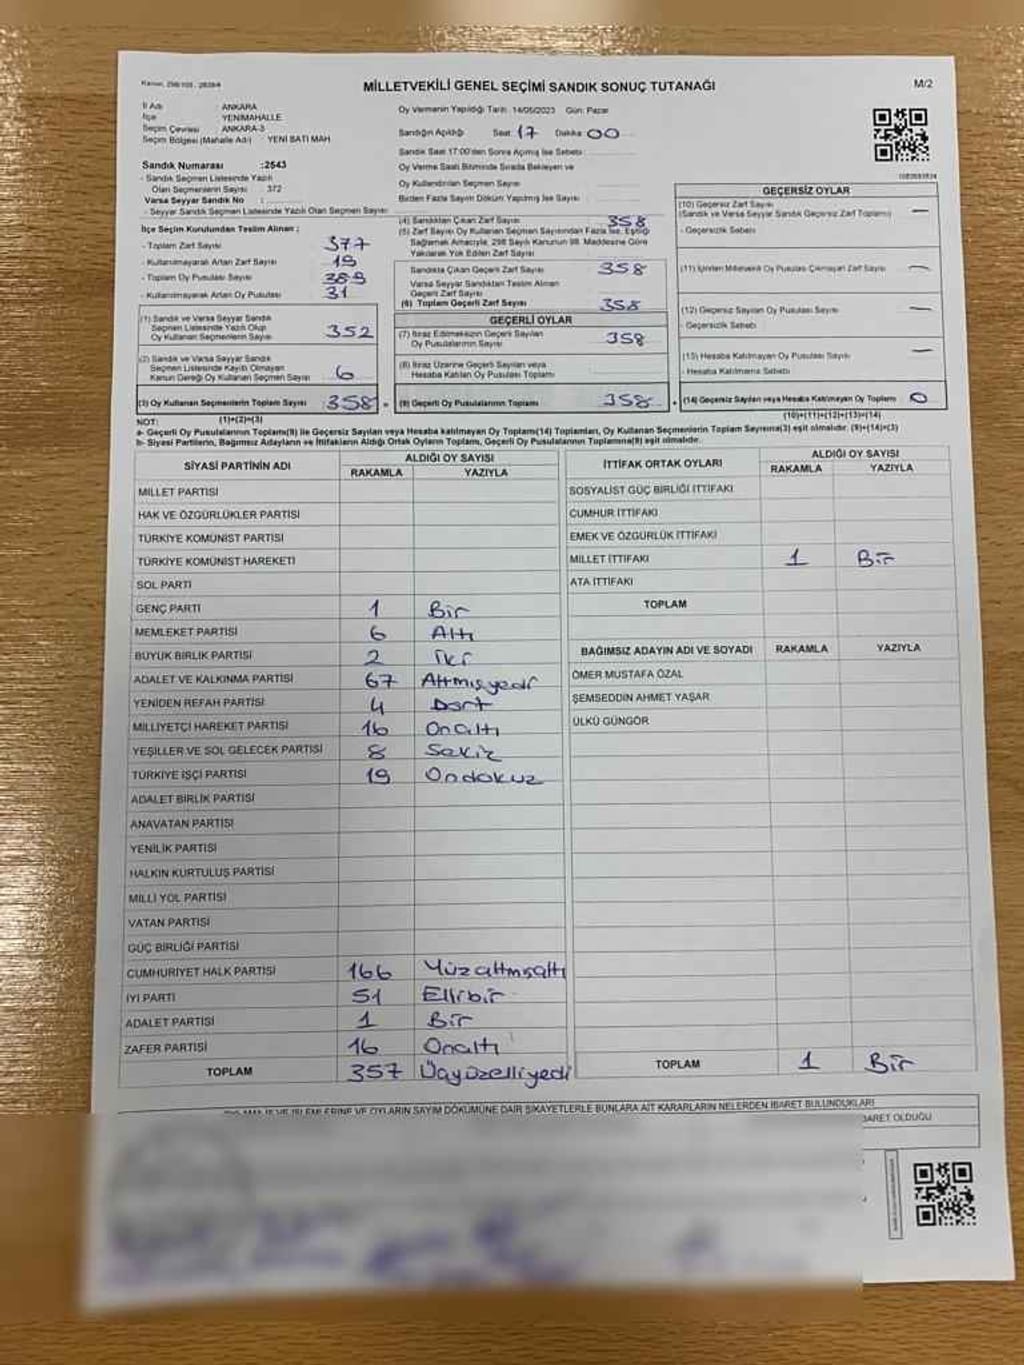 Kanun, 298/105 , 2839/4
MİLLETVEKİLİ GENEL SEÇİMİ SANDIK SONUÇ TUTANAĞI
M/2
İl Adı : ANKARA
İlçe : YENİMAHALLE
Seçim Çevresi : ANKARA-3
Seçim Bölgesi (Mahalle Adı) : YENİ BATI MAH
Sandık Numarası :2543
- Sandık Seçmen Listesinde Yazılı
Olan Seçmenlerin Sayısı : 372
Varsa Seyyar Sandık No :
- Seyyar Sandık Seçmen Listesinde Yazılı Olan Seçmen Sayısı :
İlçe Seçim Kurulundan Teslim Alınan ;
- Toplam Zarf Sayısı : 377
- Kullanılmayarak Artan Zarf Sayısı : 19
- Toplam Oy Pusulası Sayısı : 389
- Kullanılmayarak Artan Oy Pusulası : 31
(1) Sandık ve Varsa Seyyar Sandık
Seçmen Listesinde Yazılı Olup
Oy Kullanan Seçmenlerin Sayısı 352
(2) Sandık ve Varsa Seyyar Sandık
Seçmen Listesinde Kayıtlı Olmayan
Kanun Gereği Oy Kullanan Seçmen Sayısı 6
(3) Oy Kullanan Seçmenlerin Toplam Sayısı 358 =
(1)+(2)=(3)
Oy Vermenin Yapıldığı Tarih: 14/05/2023 Gün: Pazar
Sandığın Açıldığı Saat: 17 Dakika: 00
Sandık Saat 17:00'den Sonra Açılmış İse Sebebi :
Oy Verme Saati Bitiminde Sırada Bekleyen ve
Oy Kullandırılan Seçmen Sayısı :
Birden Fazla Sayım Döküm Yapılmış İse Sayısı :
(4) Sandıktan Çıkan Zarf Sayısı 358
(5) Zarf Sayısı Oy Kullanan Seçmen Sayısından Fazla İse, Eşitliği
Sağlamak Amacıyla, 298 Sayılı Kanunun 98. Maddesine Göre
Yakılarak Yok Edilen Zarf Sayısı
Sandıkta Çıkan Geçerli Zarf Sayısı 358
Varsa Seyyar Sandıktan Teslim Alınan
Geçerli Zarf Sayısı
(6) Toplam Geçerli Zarf Sayısı 358
GEÇERLİ OYLAR
(7) İtiraz Edilmeksizin Geçerli Sayılan
Oy Pusulalarının Sayısı 358
(8) İtiraz Üzerine Geçerli Sayılan veya
Hesaba Katılan Oy Pusulaları Toplamı
(9) Geçerli Oy Pusulalarının Toplamı 358 +
GEÇERSİZ OYLAR
(10) Geçersiz Zarf Sayısı —
(Sandık ve Varsa Seyyar Sandık Geçersiz Zarf Toplamı)
- Geçersizlik Sebebi
(11) İçinden Milletvekili Oy Pusulası Çıkmayan Zarf Sayısı —
(12) Geçersiz Sayılan Oy Pusulası Sayısı —
- Geçersizlik Sebebi
(13) Hesaba Katılmayan Oy Pusulası Sayısı —
- Hesaba Katılmama Sebebi
(14) Geçersiz Sayılan veya Hesaba Katılmayan Oy Toplamı 0
(10)+(11)+(12)+(13)=(14)
NOT:
a- Geçerli Oy Pusulalarının Toplamı(9) ile Geçersiz Sayılan veya Hesaba Katılmayan Oy Toplamı(14) Toplamları, Oy Kullanan Seçmenlerin Toplam Sayısına(3) eşit olmalıdır. (9)+(14)=(3)
b- Siyasi Partilerin, Bağımsız Adayların ve İttifakların Aldığı Ortak Oyların Toplamı, Geçerli Oy Pusulalarının Toplamına(9) eşit olmalıdır.
SİYASİ PARTİNİN ADI ALDIĞI OY SAYISI
RAKAMLA YAZIYLA
MİLLET PARTİSİ
HAK VE ÖZGÜRLÜKLER PARTİSİ
TÜRKİYE KOMÜNİST PARTİSİ
TÜRKİYE KOMÜNİST HAREKETİ
SOL PARTİ
GENÇ PARTİ 1 Bir
MEMLEKET PARTİSİ 6 Altı
BÜYÜK BİRLİK PARTİSİ 2 İki
ADALET VE KALKINMA PARTİSİ 67 Altmışyedi
YENİDEN REFAH PARTİSİ 4 Dört
MİLLİYETÇİ HAREKET PARTİSİ 16 Onaltı
YEŞİLLER VE SOL GELECEK PARTİSİ 8 Sekiz
TÜRKİYE İŞÇİ PARTİSİ 19 Ondokuz
ADALET BİRLİK PARTİSİ
ANAVATAN PARTİSİ
YENİLİK PARTİSİ
HALKIN KURTULUŞ PARTİSİ
MİLLİ YOL PARTİSİ
VATAN PARTİSİ
GÜÇ BİRLİĞİ PARTİSİ
CUMHURİYET HALK PARTİSİ 166 Yüzaltmışaltı
İYİ PARTİ 51 Ellibir
ADALET PARTİSİ 1 Bir
ZAFER PARTİSİ 16 Onaltı
TOPLAM 357 Üçyüzelliyedi
İTTİFAK ORTAK OYLARI ALDIĞI OY SAYISI
RAKAMLA YAZIYLA
SOSYALİST GÜÇ BİRLİĞİ İTTİFAKI
CUMHUR İTTİFAKI
EMEK VE ÖZGÜRLÜK İTTİFAKI
MİLLET İTTİFAKI 1 Bir
ATA İTTİFAKI
TOPLAM
BAĞIMSIZ ADAYIN ADI VE SOYADI RAKAMLA YAZIYLA
ÖMER MUSTAFA ÖZAL
ŞEMSEDDİN AHMET YAŞAR
ÜLKÜ GÜNGÖR
TOPLAM 1 Bir
VE OYLARIN SAYIM DÖKÜMÜNE DAİR ŞİKAYETLERLE BUNLARA AİT KARARLARIN NELERDEN İBARET BULUNDUKLARI
OLDUĞU